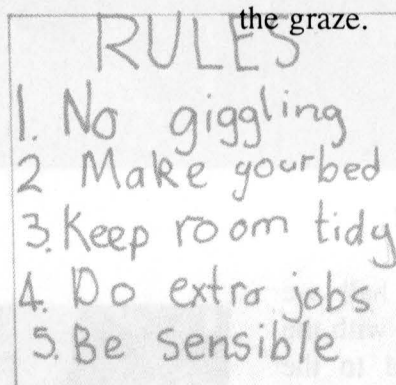 the graze.
RULES
1. No giggling
2 Make your bed
3. Keep room tidy
4. Do extra jobs
5. Be Sensible